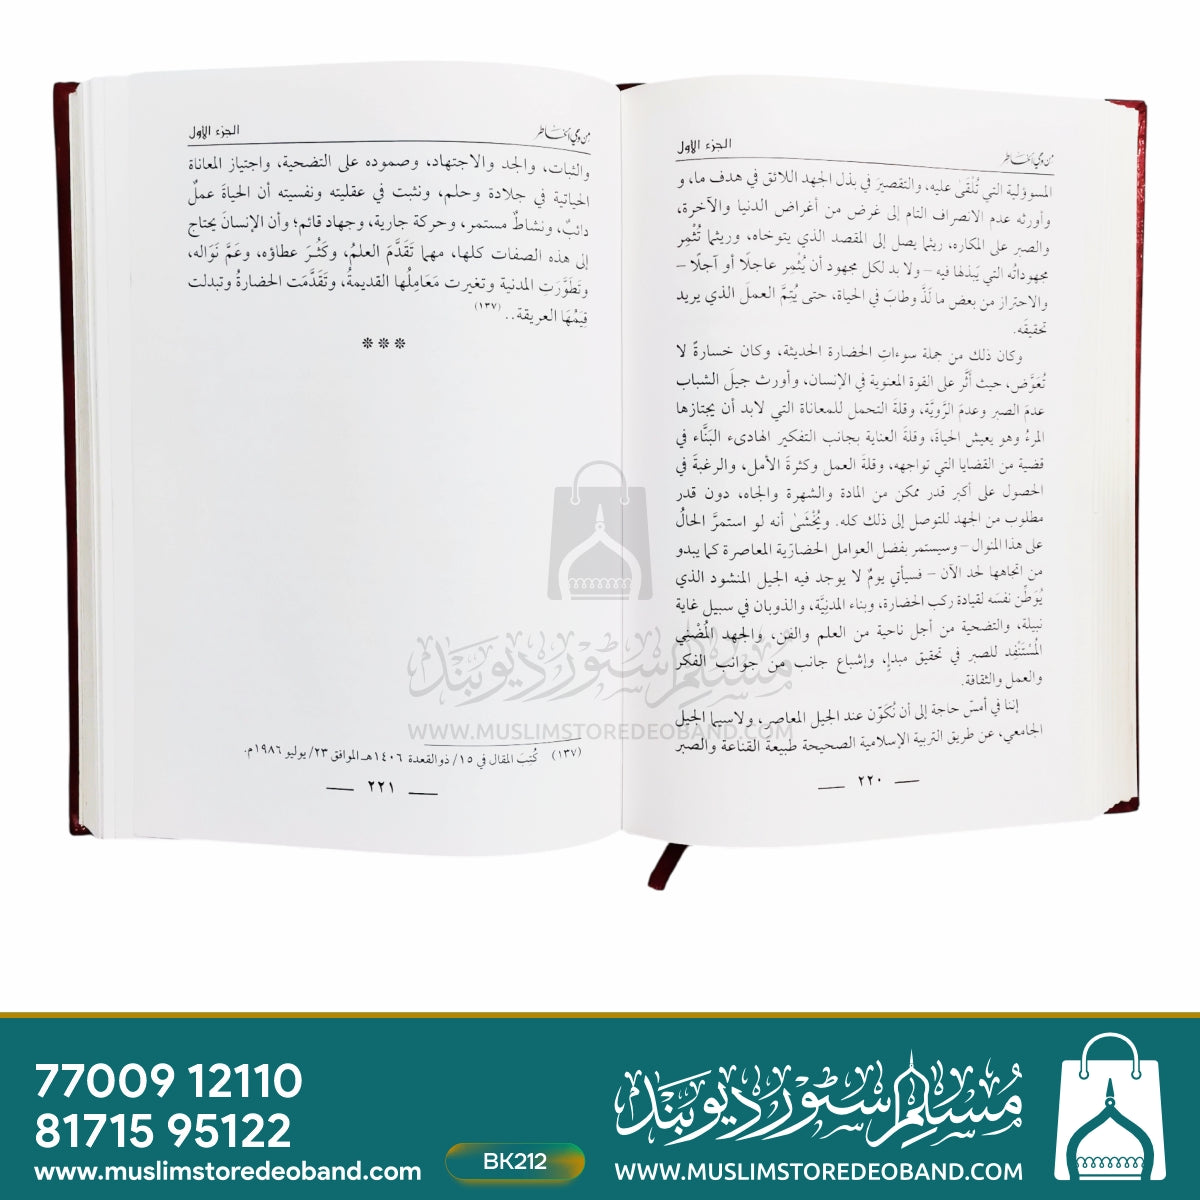 من وحي الخاطر الجزء الأول
المسؤولية التي تُلْقَىٰ عليه، والتقصيرَ في بذل الجهد اللائق في هدف ما، و
وأورثه عدم الانصراف التام إلى غرض من أغراض الدنيا والآخرة،
والصبر على المكاره، ريثما يصل إلى المقصد الذي يتوخاه، وريثما تُثْمِر
مجهوداتُه التي يَبذلها فيه – ولا بد لكل مجهود أن يُثْمِر عاجلًا أو آجلًا –
والاحتراز من بعض ما لَذَّ وطابَ في الحياة، حتى يُتِمَّ العملَ الذي يريد
تحقيقَه.
وكان ذلك من جملة سوءاتِ الحضارة الحديثة، وكان خسارةً لا
تُعَوَّض، حيث أثَّر على القوة المعنوية في الإنسان، وأورث جيلَ الشباب
عدمَ الصبر وعدمَ الرَّويَّة، وقلةَ التحمل للمعاناة التي لابد أن يجتازها
المرءُ وهو يعيش الحياةَ، وقلةَ العناية بجانب التفكير الهادىء البَنَّاء في
قضية من القضايا التي تواجهه، وقلةَ العمل وكثرةَ الأمل، والرغبةَ في
الحصول على أكبر قدر ممكن من المادة والشهرة والجاه، دون قدر
مطلوب من الجهد للتوصل إلى ذلك كله. ويُخْشَىٰ أنه لو استمرَّ الحالُ
على هذا المنوال – وسيستمر بفضل العوامل الحضارّية المعاصرة كما يبدو
من اتجاهها لحد الآن – فسيأتي يومٌ لا يوجد فيه الجيل المنشود الذي
يُوَطِّن نفسَه لقيادة ركب الحضارة، وبناء المدنيَّة، والذوبان في سبيل غاية
نبيلة، والتضحية من أجل ناحية من العلم والفن، والجهد المُضْنِي
المُسْتَنْفِد للصبر في تحقيق مبدإ، وإشباع جانب من جوانب الفكر
والعمل والثقافة.
إننا في أمسّ حاجة إلى أن نُكَوّن عند الجيل المعاصر، ولاسيما الجيل
الجامعي، عن طريق التربية الإسلامية الصحيحة طبيعة القناعة والصبر
— ٢٢٠ —
من وحي الخاطر الجزء الأول
والثبات، والجد والاجتهاد، وصموده على التضحية، واجتياز المعاناة
الحياتية في جلادة وحلم، ونثبت في عقليته ونفسيته أن الحياةَ عملٌ
دائبٌ، ونشاطٌ مستمر، وحركة جارية، وجهاد قائم؛ وأن الإنسانَ يحتاج
إلى هذه الصفات كلها، مهما تَقَدَّمَ العلمُ، وكَثُرَ عطاؤه، وعَمَّ نَوَاله،
وتَطَوَّرَتِ المدنية وتغيرت مَعَامِلُها القديمةُ، وتَقَدَّمَت الحضارةُ وتبدلت
قِيَمُهَا العريقة.. (١٣٧)
***
(١٣٧) كُتِبَ المقال في ١٥/ ذوالقعدة ١٤٠٦هـ الموافق ٢٣/ يوليو ١٩٨٦م.
— ٢٢١ —
مسلم سٹور دیوبند
WWW.MUSLIMSTOREDEOBAND.COM
77009 12110
81715 95122
www.muslimstoredeoband.com
BK212
مسلم سٹور دیوبند
WWW.MUSLIMSTOREDEOBAND.COM